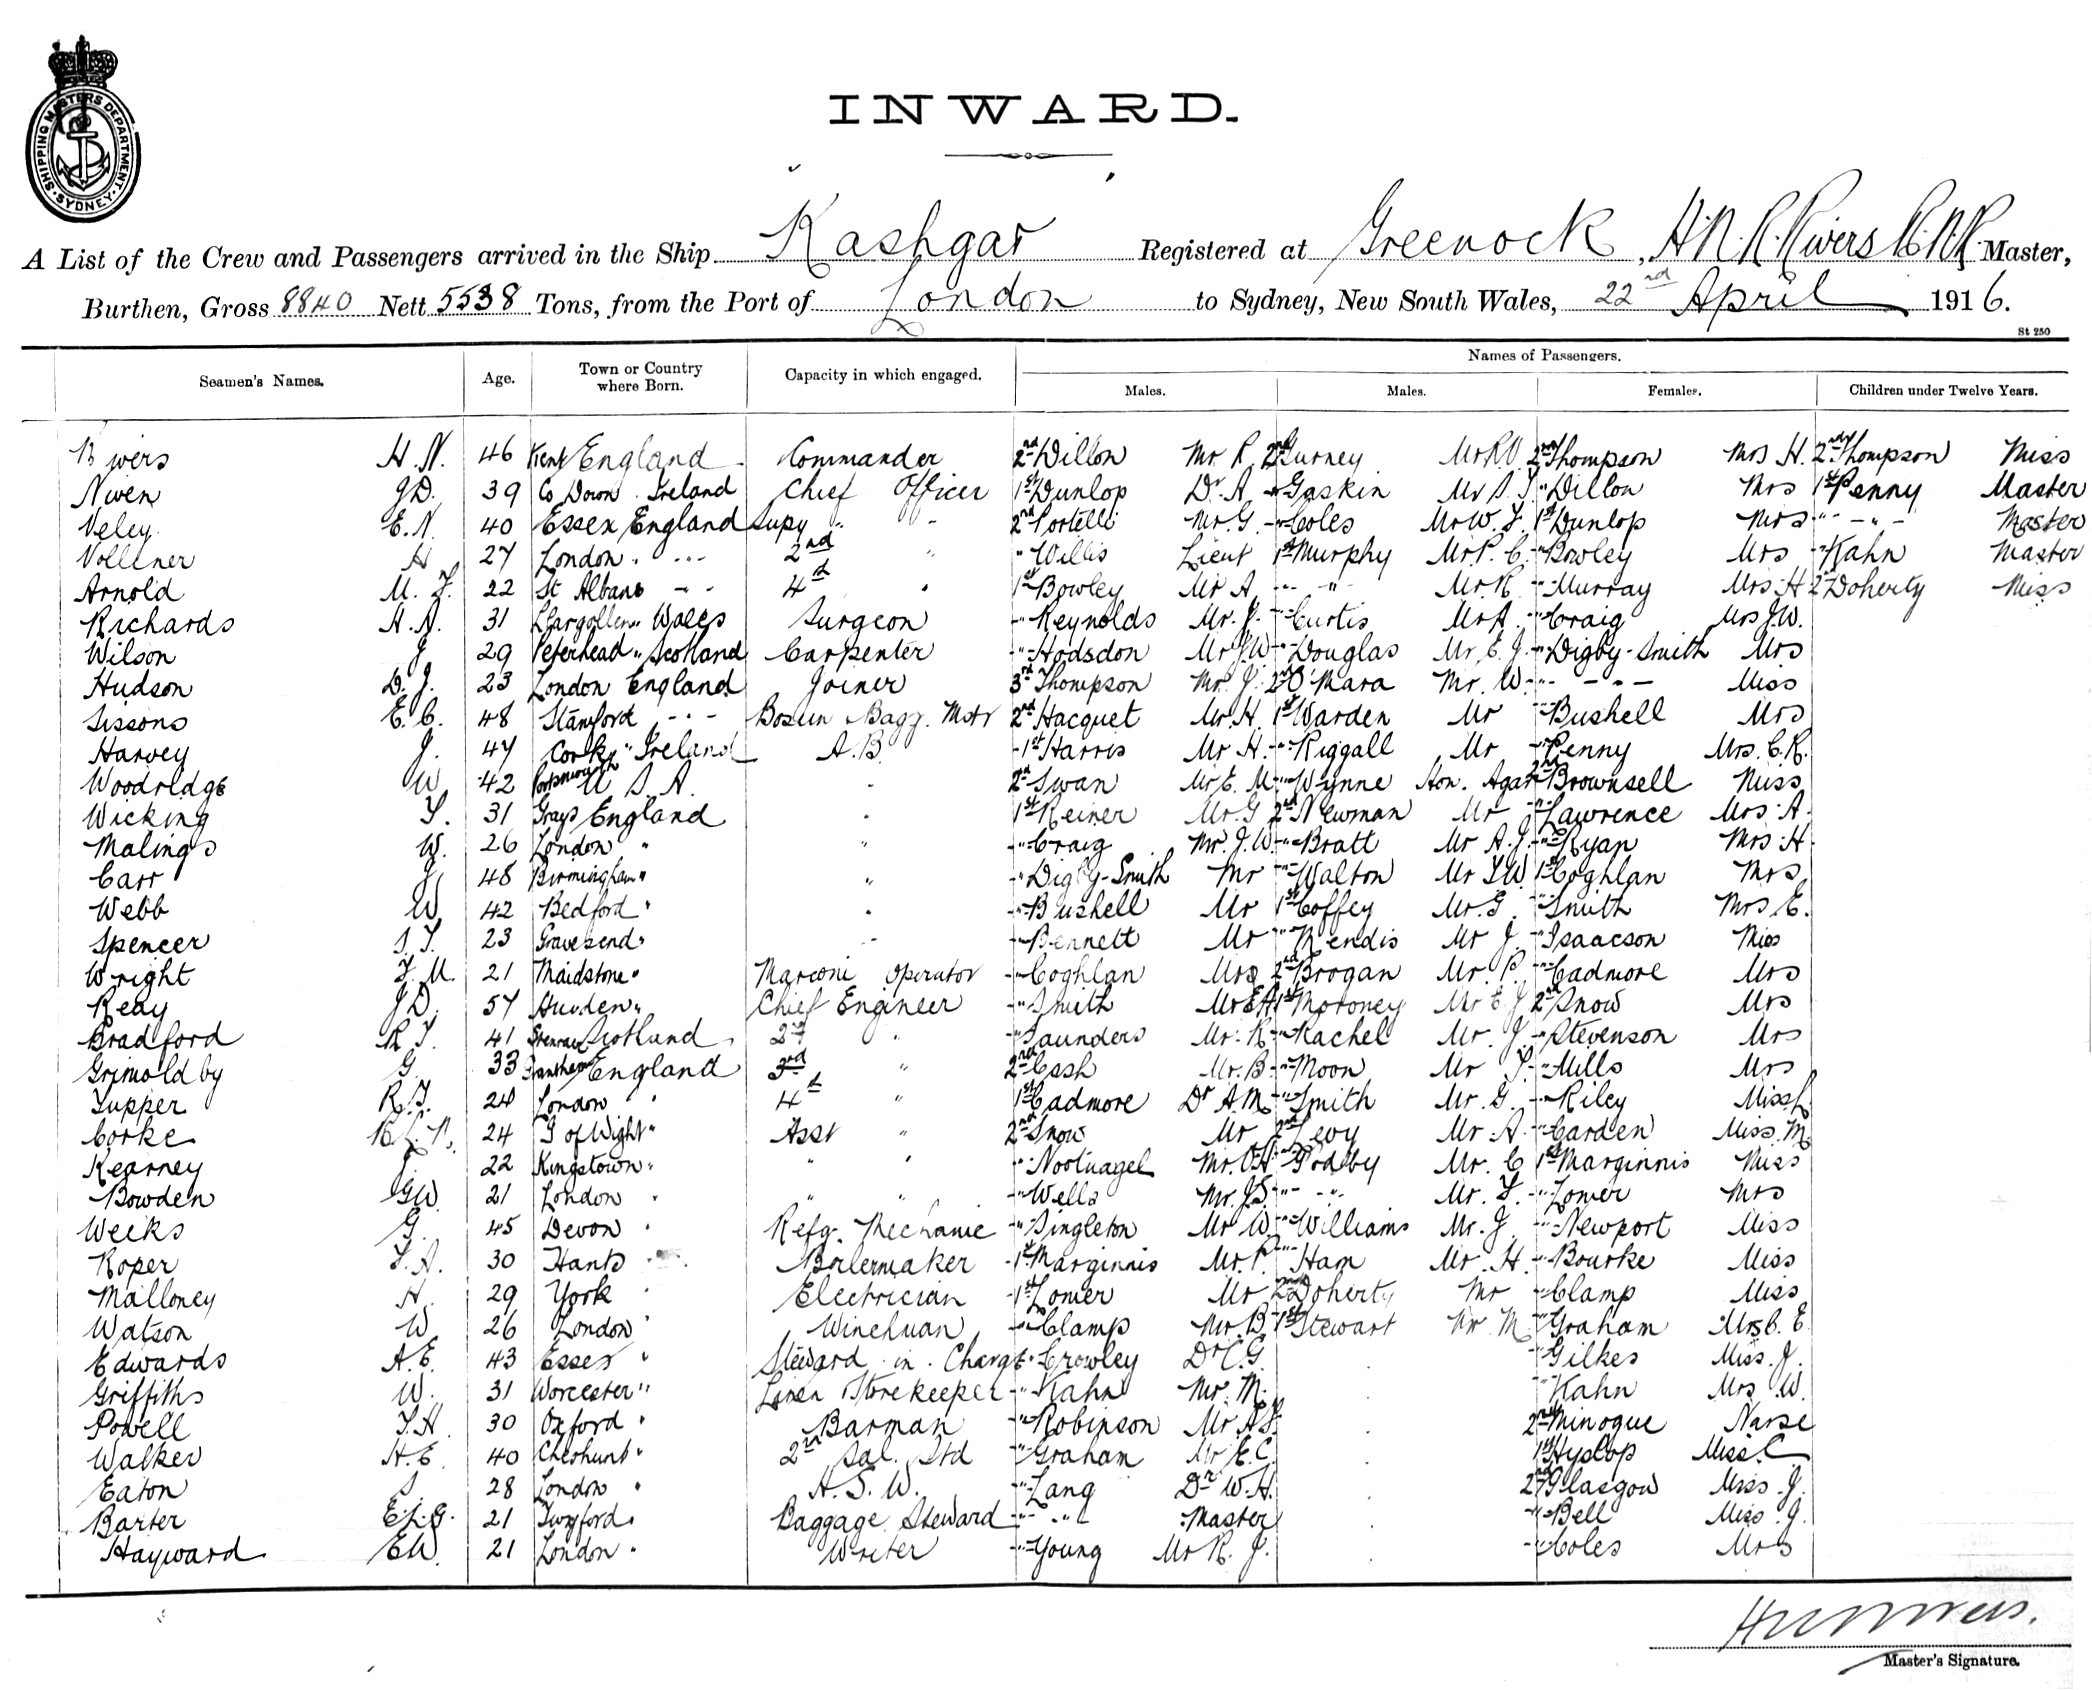 SHIPPING MASTERS DEPARTMENT. SYDNEY
INWARD.
A List of the Crew and Passengers arrived in the Ship Kashgar Registered at Greenock, H.N.R. Rivers R.N.R. Master,
Burthen, Gross 8840 Nett 5538 Tons, from the Port of London to Sydney, New South Wales, 22nd April 1916.
St 250
Names of Passengers.
Seamen's Names. Age. Town or Country where Born. Capacity in which engaged. Males. Males. Females. Children under Twelve Years.
Rivers H.N. 46 Kent England Commander 2nd Dillon Mr R 2nd Gurney Mr R V 2nd Thompson Mrs H. 2nd Thompson Miss
Niven J D. 39 Co Down Ireland Chief Officer 1st Dunlop Dr A -"- Gaskin Mr S. J " Dillon Mrs 1st Penny Master
Veley E.N. 40 Essex England Supy " " 2nd Portelli Mr G. -"- Coles Mr W. F. 1st Dunlop Mrs -"- -"- Master
Vollmer H 27 London " 2nd " " Willis Lieut 1st Murphy Mr P. C. -"- Bowley Mrs -"- Kahn Master
Arnold M. F. 22 St Albans " 4th " 1st Bowley Mr A. -"- " Mr R. -"- Murray Mrs H 2nd Doherty Miss
Richards A. A. 31 Llangollen Wales Surgeon -"- Reynolds Mr. J. -"- Curtis Mr A. -"- Craig Mrs J.W.
Wilson J 29 Peterhead " Scotland Carpenter -"- Hodsdon Mr J W -"- Douglas Mr E. J. -"- Digby-Smith Mrs
Hudson D. J. 23 London England Joiner 3rd Thompson Mr. J. 2nd O'Mara Mr. W. -"- " Miss
Sissons E. C. 48 Stamford " Bosun Bagg. Mstr 2nd Hacquet Mr H. 1st Warden Mr -"- Bushell Mrs
Harvey J. 47 Cork " Ireland A.B. 1st Harris Mr H. -"- Riggall Mr -"- Penny Mrs. C. R.
Woodridge W 42 Portsmouth U S A. " 2nd Swan Mr E. M -"- Wynne Hon. Agar 2nd Brownsell Miss
Wicking F. 31 Grays England " 1st Reiner Mr. G 2nd Newman Mr -"- Lawrence Mrs A.
Malings W. 26 London " " -"- Craig Mr. J.W. -"- Bratt Mr A. J. -"- Ryan Mrs H.
Carr J. 48 Birmingham " " -"- Digby-Smith Mr -"- Walton Mr F W. 1st Coghlan Mrs
Webb W 42 Bedford " " -"- Bushell Mr 1st Coffey Mr. G. -"- Smith Mrs E.
Spencer S. F. 23 Gravesend " " -"- Bennett Mr -"- Mendis Mr J. -"- Isaacson Miss
Wright F. M. 21 Maidstone " Marconi Operator -"- Coghlan Mrs 2nd Brogan Mr. P. -"- Cadmore Mrs
Reay J D. 57 " Chief Engineer -"- Smith Mr E A 1st Moroney Mr E. J 2nd Snow Mrs
Bradford R T. 41 Scotland 2nd " -"- Saunders Mr. R -"- Rachel Mr. J. -"- Stevenson Mrs
Grimoldby G. 33 Grantham England 3rd " 2nd Cash Mr. B. -"- Moon Mr -"- Mills Mrs
Tupper R. T. 24 London " 4th " 1st Cadmore Dr A M. -"- Smith Mr. G. -"- Riley Miss
Corke 24 I of Wight " Asst " 2nd Snow Mr 2nd Levy Mr. A. -"- Carden Miss. M
Kearney J. 22 Kingstown " " " -"- Nootnagel Mr. -"- Mr. C 1st Marginnis Miss
Bowden G W. 21 London " " " -"- Wells Mr. J.S. -"- -"- Mr. F. -"- Lomer Mrs
Weeks G. 45 Devon " Refg. Mechanic -"- Singleton Mr W. -"- Williams Mr. J. -"- Newport Miss
Roper F. A. 30 Hants " Boilermaker 1st Marginnis Mr. P. -"- Ham Mr. H. -"- Bourke Miss
Malloney A. 29 York " Electrician 1st Lomer Mr 2nd Doherty Mr -"- Clamp Miss
Watson W 26 London " Winchman -"- Clamp Mr. B 1st Stewart Mr. M -"- Graham Mrs C. E.
Edwards A. E. 43 Essex " Steward in Charge " Crowley Dr C. G. " Gilkes Miss. J.
Griffiths W. 31 Worcester " Linen Storekeeper -"- Kahn Mr. M. " Kahn Mrs. W.
Powell F. H. 30 Oxford " Barman -"- Robinson Mr A.S. 2nd Minogue Nurse
Walker H. E. 40 Cheshunt " 2nd Sal. Std -"- Graham Mr E. C. 1st Hyslop Miss. C
Eaton S. 28 London " A. S. W. -"- Lang Dr W. H. 2nd Glasgow Miss. J.
Barter E. L. G. 21 Twyford " Baggage Steward -"- -"- Master -"- Bell Miss. J.
Hayward E W. 21 London " Writer -"- Young Mr R. J. -"- Coles Mrs
Master's Signature.